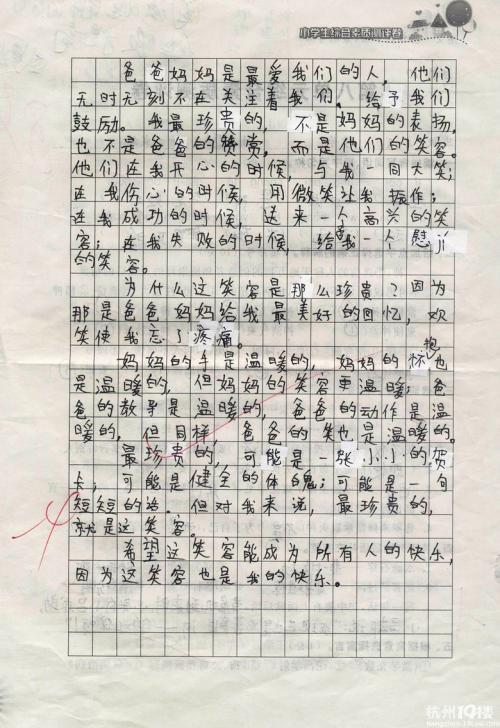 小学生综合素质测评卷
爸爸妈妈是最爱我们的人。他们
无时无刻不在关注着我们。给予我们
鼓励。我最珍贵的，不是妈妈的表扬，
也不是爸爸的赞赏，而是他们的笑容。
他们在我开心的时候，与我一同大笑；
在我伤心的时候，用微笑让我振作；
在我成功的时候，送来一个高兴的笑
容；在我失败的时候，给我一个慰
的笑容。
为什么这笑容是那么珍贵？因为
那是爸爸妈妈给我最美好的回忆，欢
笑使我忘了疼痛。
妈妈的手是温暖的，妈妈的怀抱也
是温暖的，但妈妈的笑容更温暖；爸
爸的教导是温暖的，爸爸的动作是温
暖的，但同样，爸爸的笑也是温暖的。
最珍贵的，可能是一张小小的贺
卡，可能是健全的体魄；可能是一句
短短的话。但对我来说，最珍贵的，
就是这笑容。
希望这笑容能成为所有人的快乐，
因为这笑容也是我的快乐。
杭州19楼